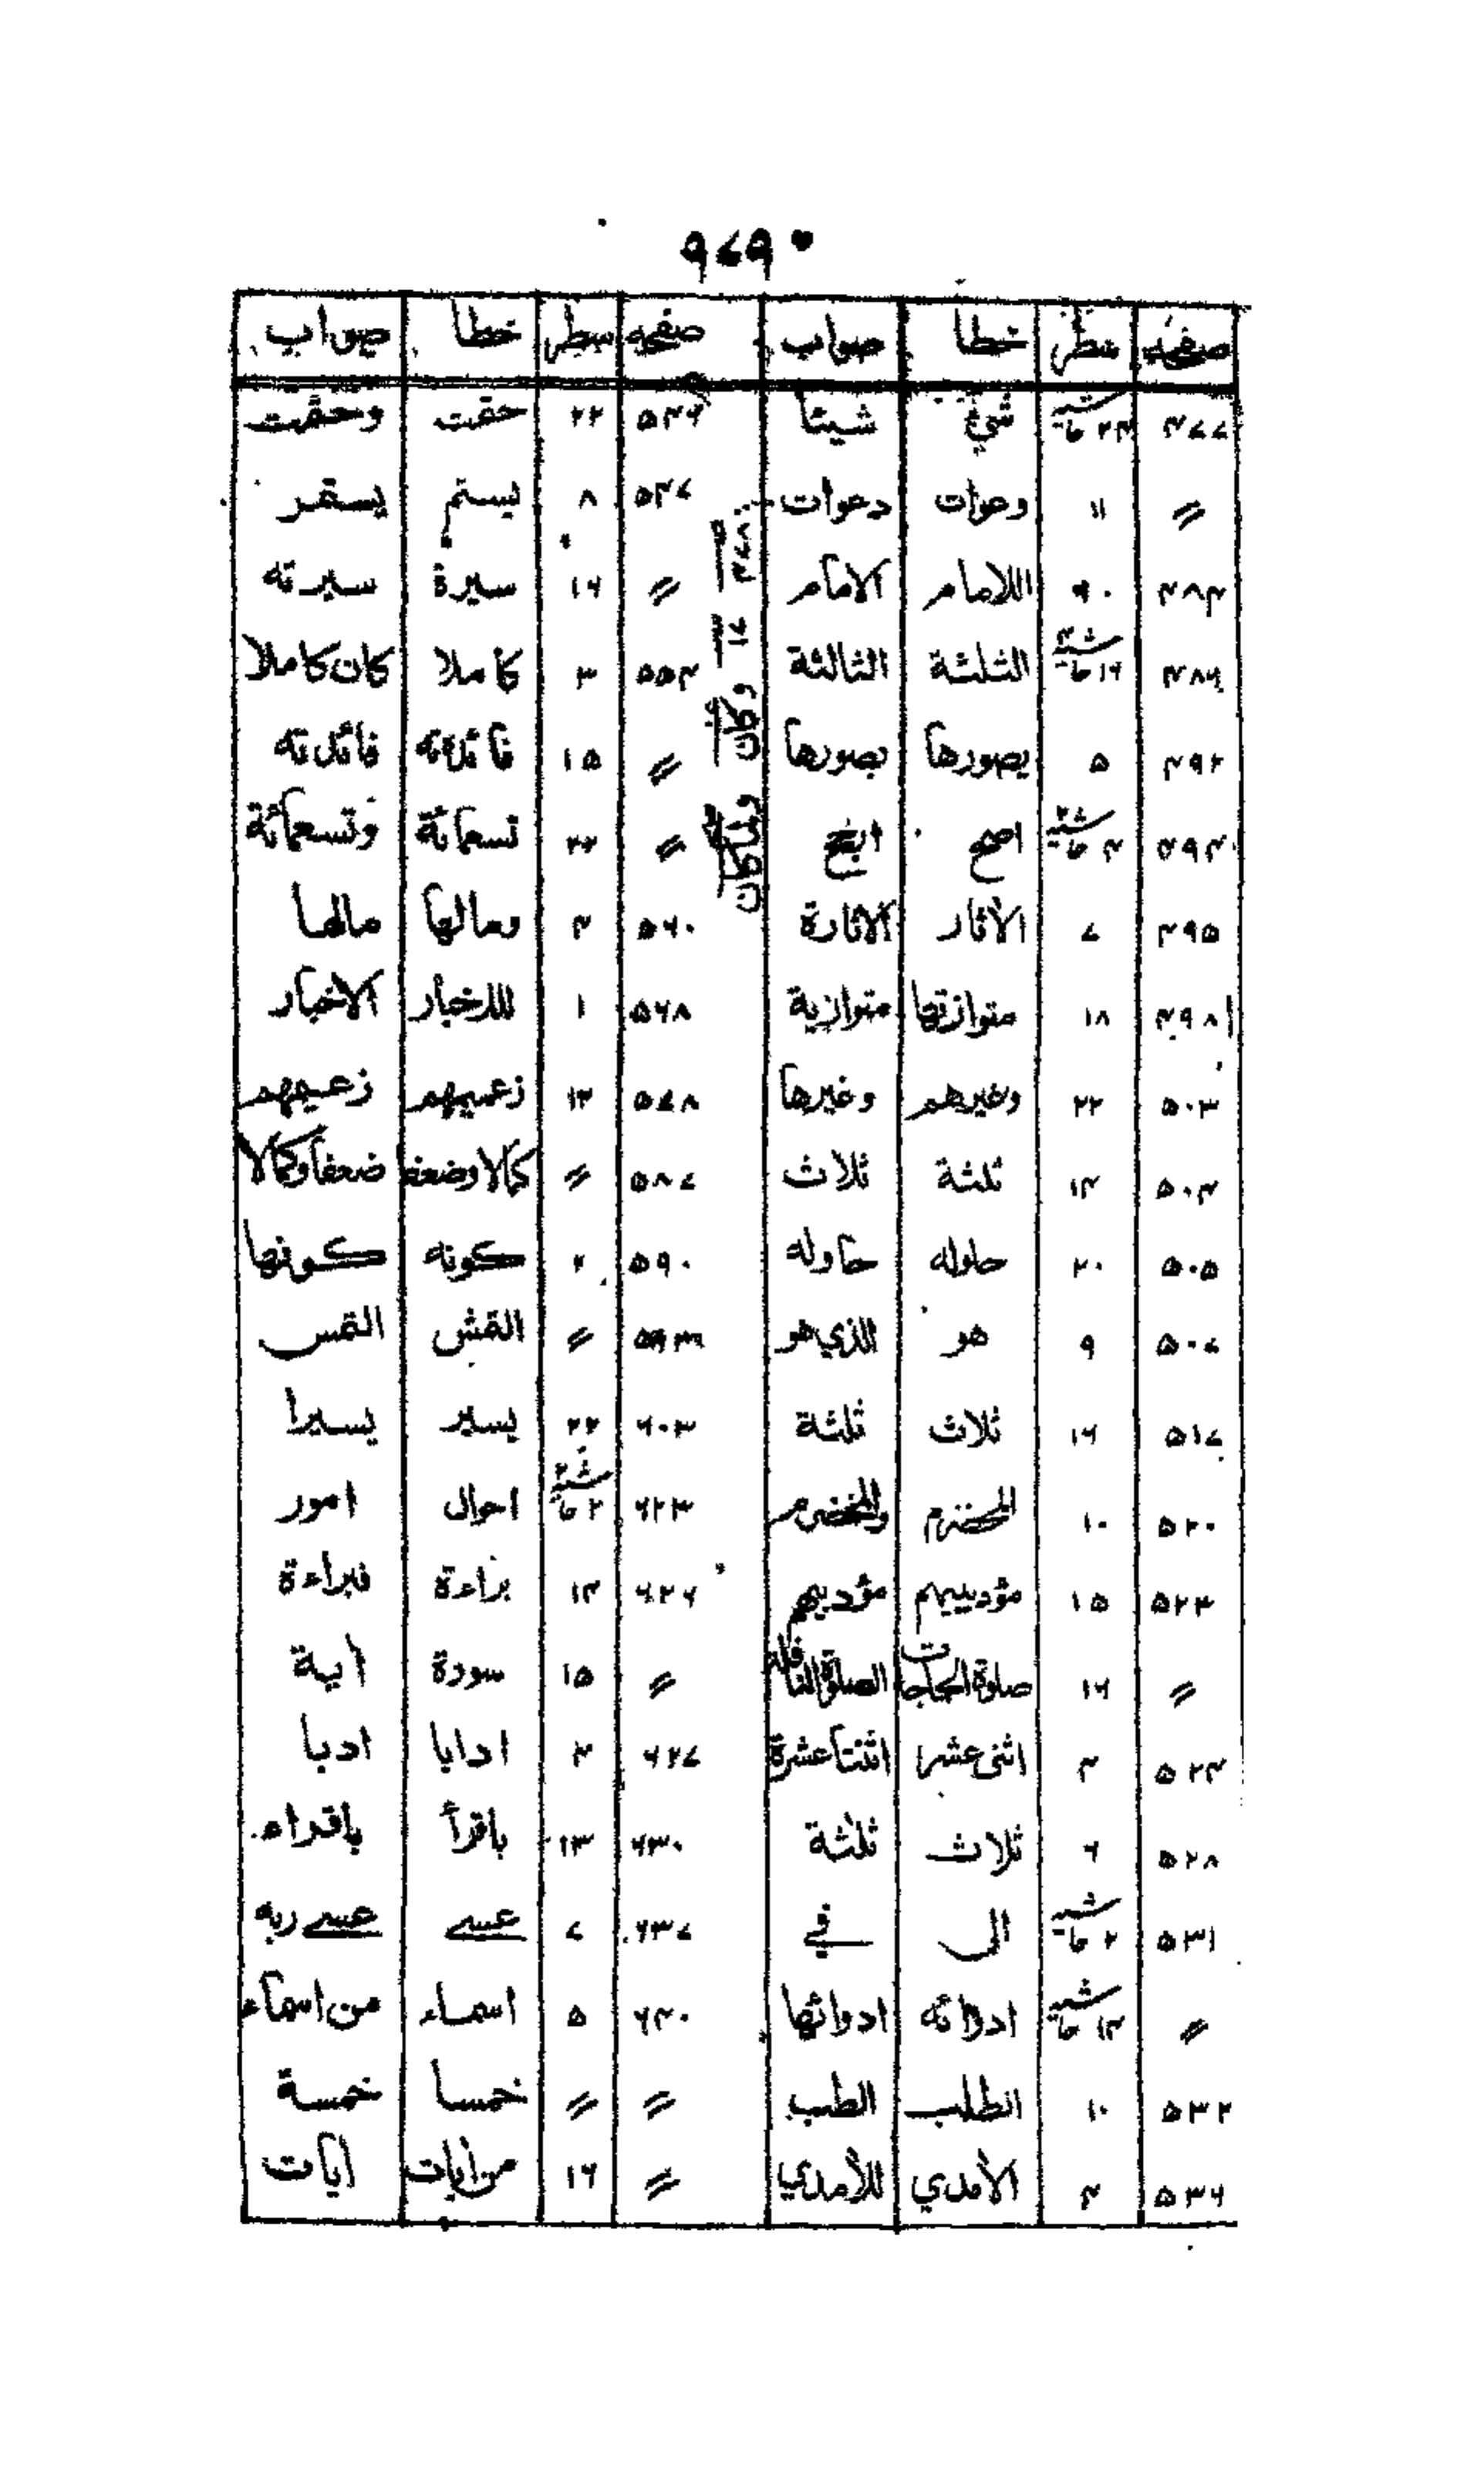 ۹۷۹
صفحه سطر خطأ صواب صفحه سطر خطأ صواب
۴۷۷ ۲۴ حاشية شئ شيئا ۵۴۶ ۲۲ حقت وحقت
〃 ۱۱ وحوات دعوات ۵۴۷ ۸ يستم يستمر
۴۸۴ ۹ اللامام الامام 〃 ۱۶ سيرة سيرته
۴۸۶ ۱۶ حاشية الثلثة الثالثة ۵۵۴ ۳ كاملا كان كاملا
۴۹۲ ۵ يصورها بصورها 〃 ۱۵ فائدته
۴۹۴ ۴ حاشية اصح 〃 ۲۲ تسعمائة وتسعمائة
۴۹۵ ۷ الأثار الاثارة ۵۶۰ ۴ ومالها مالها
۴۹۸ ۱۸ متوازتها متوازية ۵۶۸ ۱ للاخبار الاخبار
۵۰۳ ۲۲ وغيرهم وغيرها ۵۷۸ ۱۲ زعيمهم
۵۰۴ ۱۴ ثلثة ثلاث ۵۸۷ 〃 كمالا وضعفا ضعفا وكمالا
۵۰۵ ۲۰ حلوله حاوله ۵۹۰ ۲ كونه كونها
۵۰۷ ۹ هو الذي هو 〃 القش القس
۵۱۷ ۱۶ ثلاث ثلثة ۶۰۳ ۲۲ يسير يسيرا
۵۲۰ ۱۰ المخضرم والمخضرم ۶۲۳ ۲ حاشية احوال امور
۵۲۳ ۱۵ مؤدييهم مؤديهم ۶۲۶ ۱۴ براءة فبراءة
〃 ۱۶ صلوة الحاجات الصلوة النافلة 〃 ۱۵ سورة اية
۵۲۴ ۴ اثنى عشر اثنتا عشرة ۶۲۷ ۴ ادابا ادبا
۵۲۸ ۶ ثلاث ثلثة ۶۳۰ ۱۳ باقرأ باقراء
۵۳۱ ۲ حاشية الى في ۶۳۷ ۷ عسے عسے ربه
〃 ۱۴ حاشية ادواته ادواتها ۶۴۰ ۵ اسماء من اسماء
۵۳۲ ۱۰ الطلب الطب 〃 〃 خمسا خمسة
۵۳۶ ۴ الأمدي للأمدي 〃 ۱۶ من ايات ايات
وكان
ولما كان